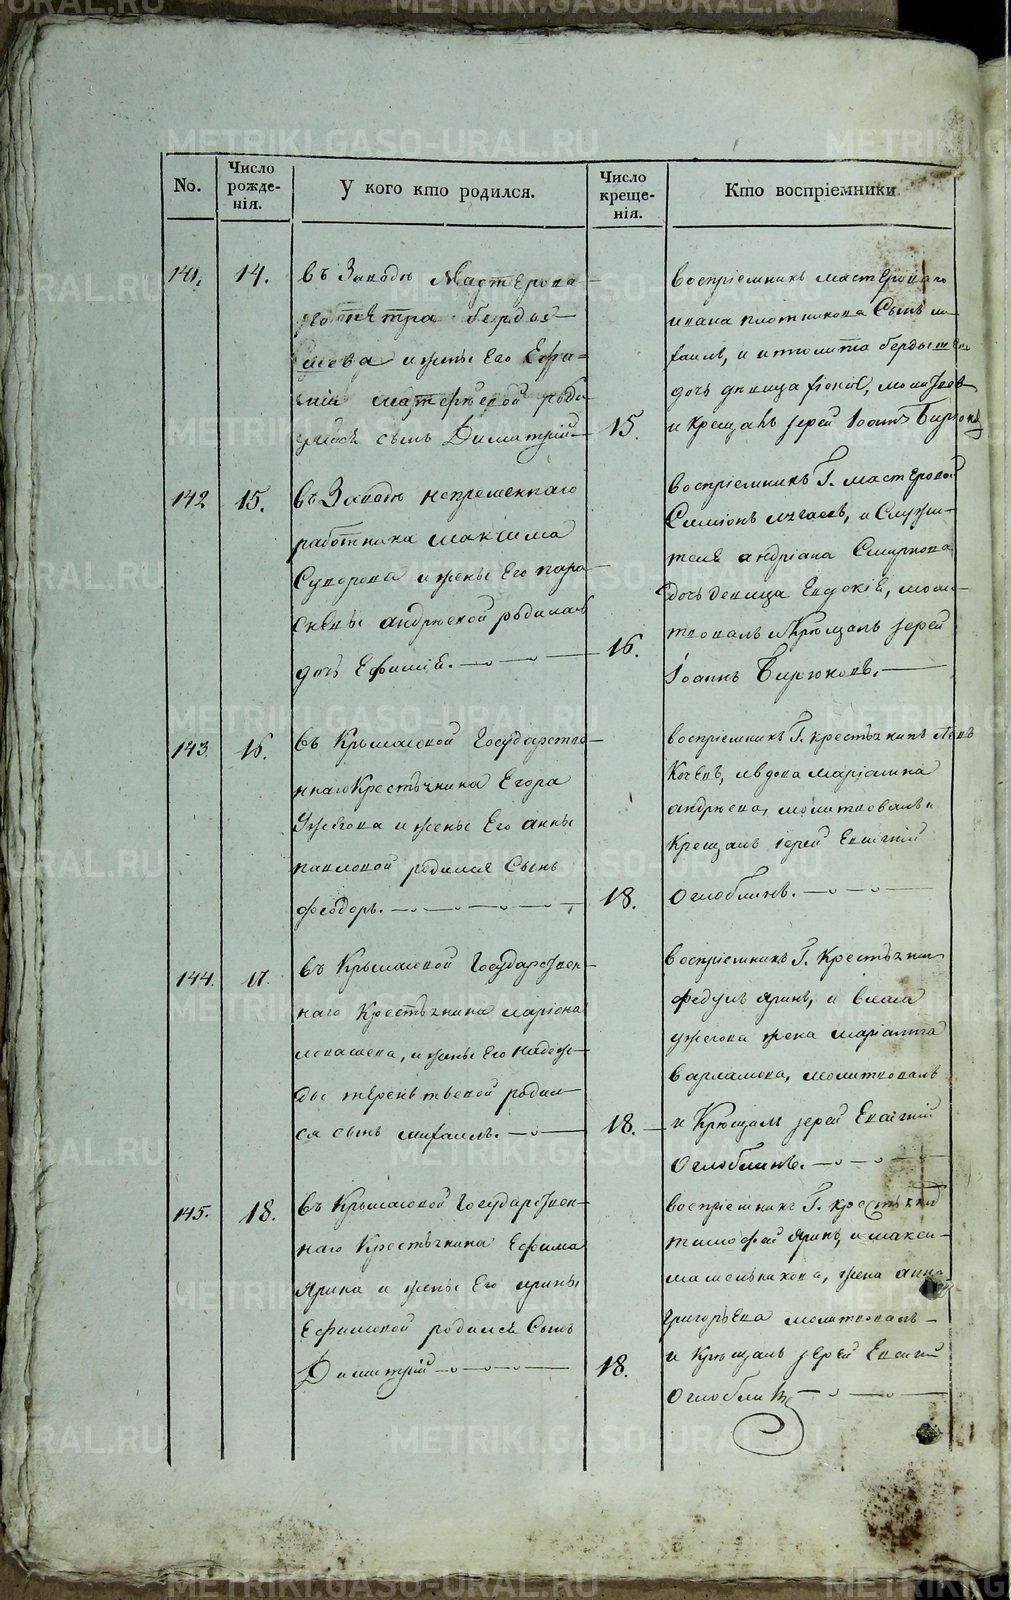 No.
Число рожде-
нія.
У кого кто родился.
Число креще-
нія.
Кто воспріемники
141.
14.
въ Заводѣ Мастерова
го петра берды
шева и жены Его Ефи-
міи матфѣевой роди
лся сынъ Димитрій
15.
воспріемникъ мастероваго
ивана плотникова Сынъ ми
хаилъ, и
дочь девица
и крещалъ іерей Іоаннъ Бирюков
142
15.
въ Заводѣ непременнаго
работника максима
Суворова и жены Его пара
скевы андреевой родилась
дочь Ефимія.
16.
воспріемникъ Г. мастеровой
Симіонъ и Служи-
теля андріана Смирнова
дочь девица Евдокія, моли-
твовалъ и Крещалъ іерей
Іоаннъ Бирюковъ.
143.
16.
въ Крыласовой Государстве
ннаго Крестьянина Егора
Ужегова и жены Его анны
павловой родился Сынъ
феодоръ.
18.
воспріемникъ Г. крестьянинъ
вдова маріамна
андреева, молитвовалъ и
Крещалъ іерей Евгеній
Оглоблинъ.
144.
17.
въ Крыласовой Государствен-
наго Крестьянина маріона
и жены Его надеж-
ды терентьевой родил-
ся сынъ михаилъ.
18.
воспріемникъ Г. Крестьянин
федулъ яринъ, и
ужегова жена маріамна
варламова, молитвовалъ
и Крещалъ іерей Евгеній
Оглоблинъ.
145.
18.
въ Крыласовой Государствен-
наго Крестьянина Ефима
Ярина и жены Его ирины
Ефимовой родился Сынъ
Димитрій
18.
воспріемникъ Г. крестьянин
тимофей яринъ, и макси-
ма мельникова, жена анна
григорьева молитвовалъ
и Крещалъ іерей Евгеній
Оглоблинъ
METRIKI.GASO-URAL.RU